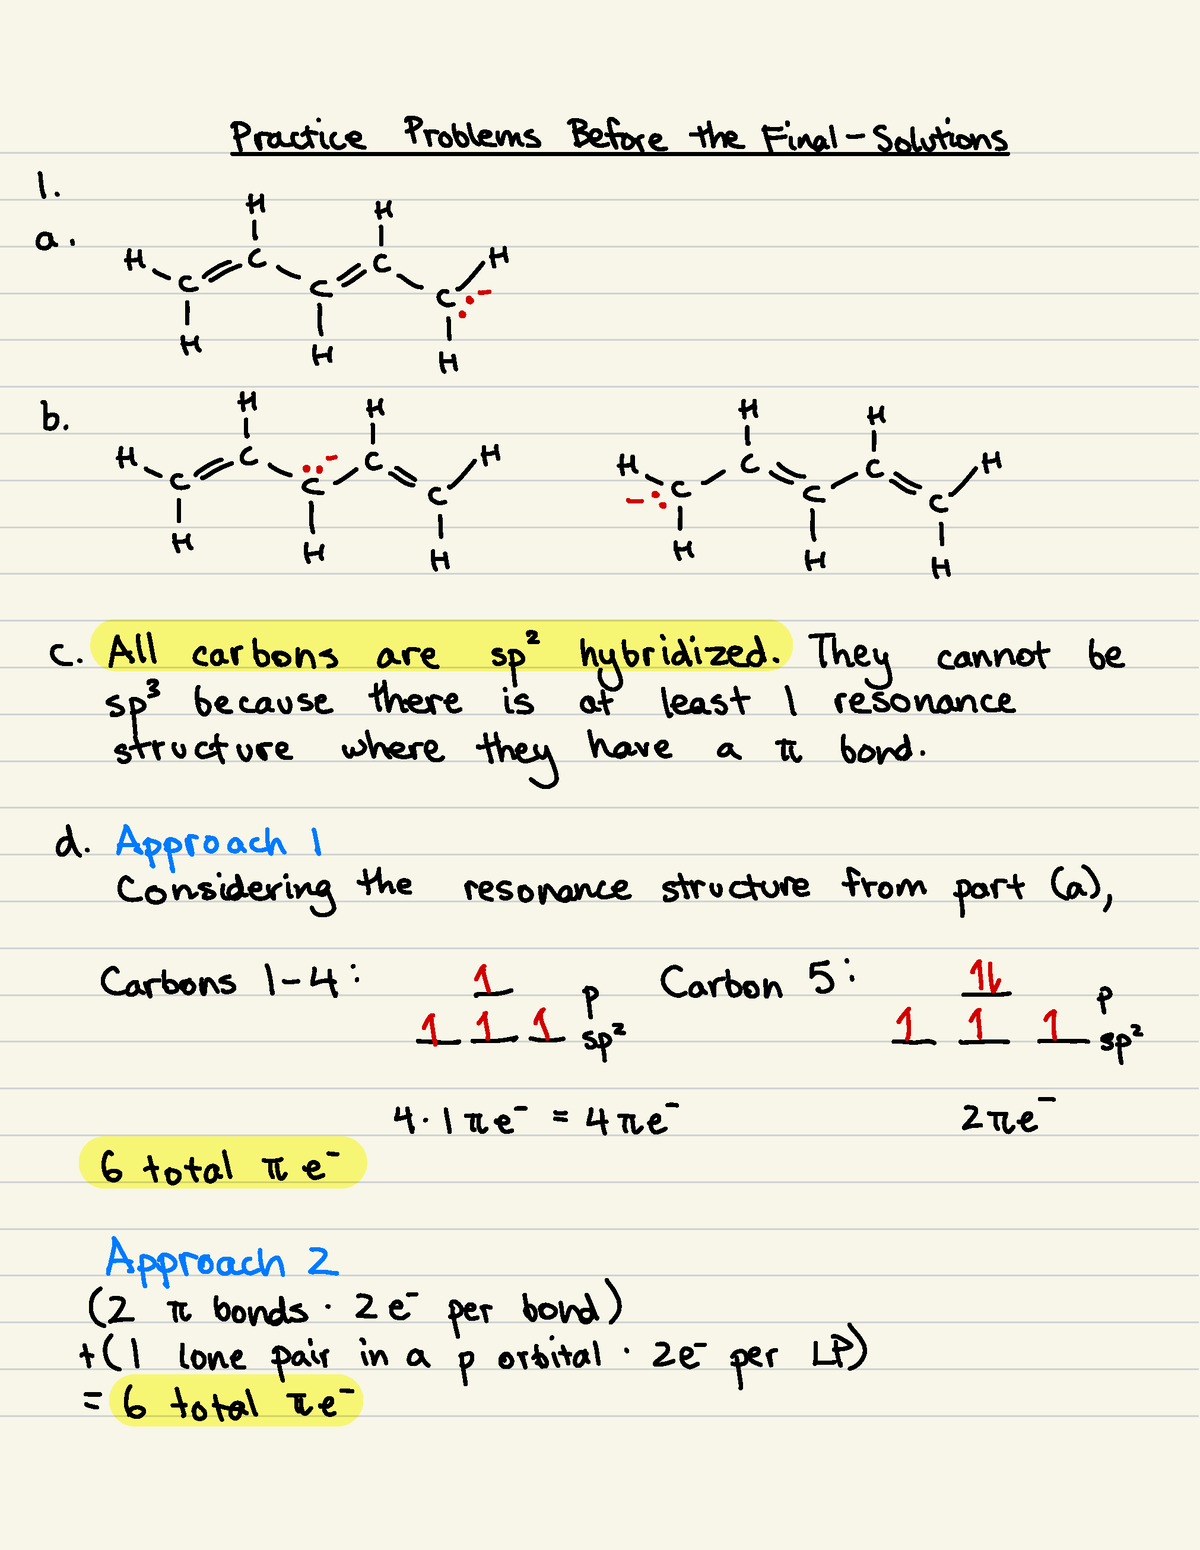 Practice Problems Before the Final - Solutions
1.
a.
H H
H C C H
C C C:-
H H H
b.
H H H H
H C :- C H H C C H
C C C -:C C C
H H H H H H
c. All carbons are sp² hybridized. They cannot be
sp³ because there is at least 1 resonance
structure where they have a π bond.
d. Approach 1
Considering the resonance structure from part (a),
Carbons 1-4: 1 p Carbon 5: 1L p
1 1 1 sp² 1 1 1 sp²
4·1πe⁻ = 4πe⁻ 2πe⁻
6 total π e⁻
Approach 2
(2 π bonds · 2e⁻ per bond)
+(1 lone pair in a p orbital · 2e⁻ per LP)
= 6 total πe⁻